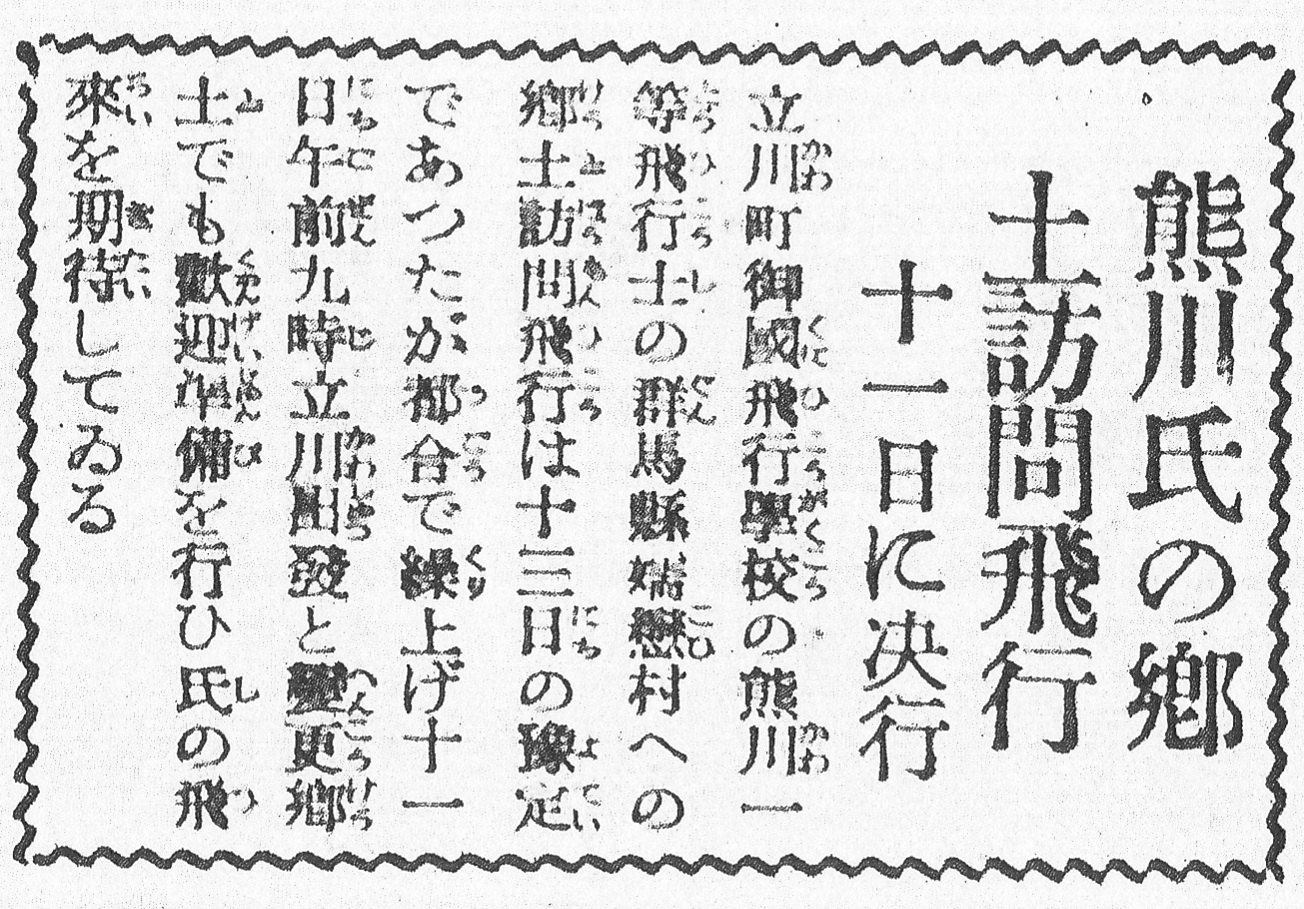 熊川氏の鄕
土訪問飛行
十一日に決行
立川町御國飛行學校の熊川一
等飛行士の群馬縣嬬戀村への
鄕土訪問飛行は十三日の豫定
であつたが都合で繰上げ十一
日午前九時立川出發と變更鄕
土でも歡迎準備を行ひ氏の飛
來を期待してゐる